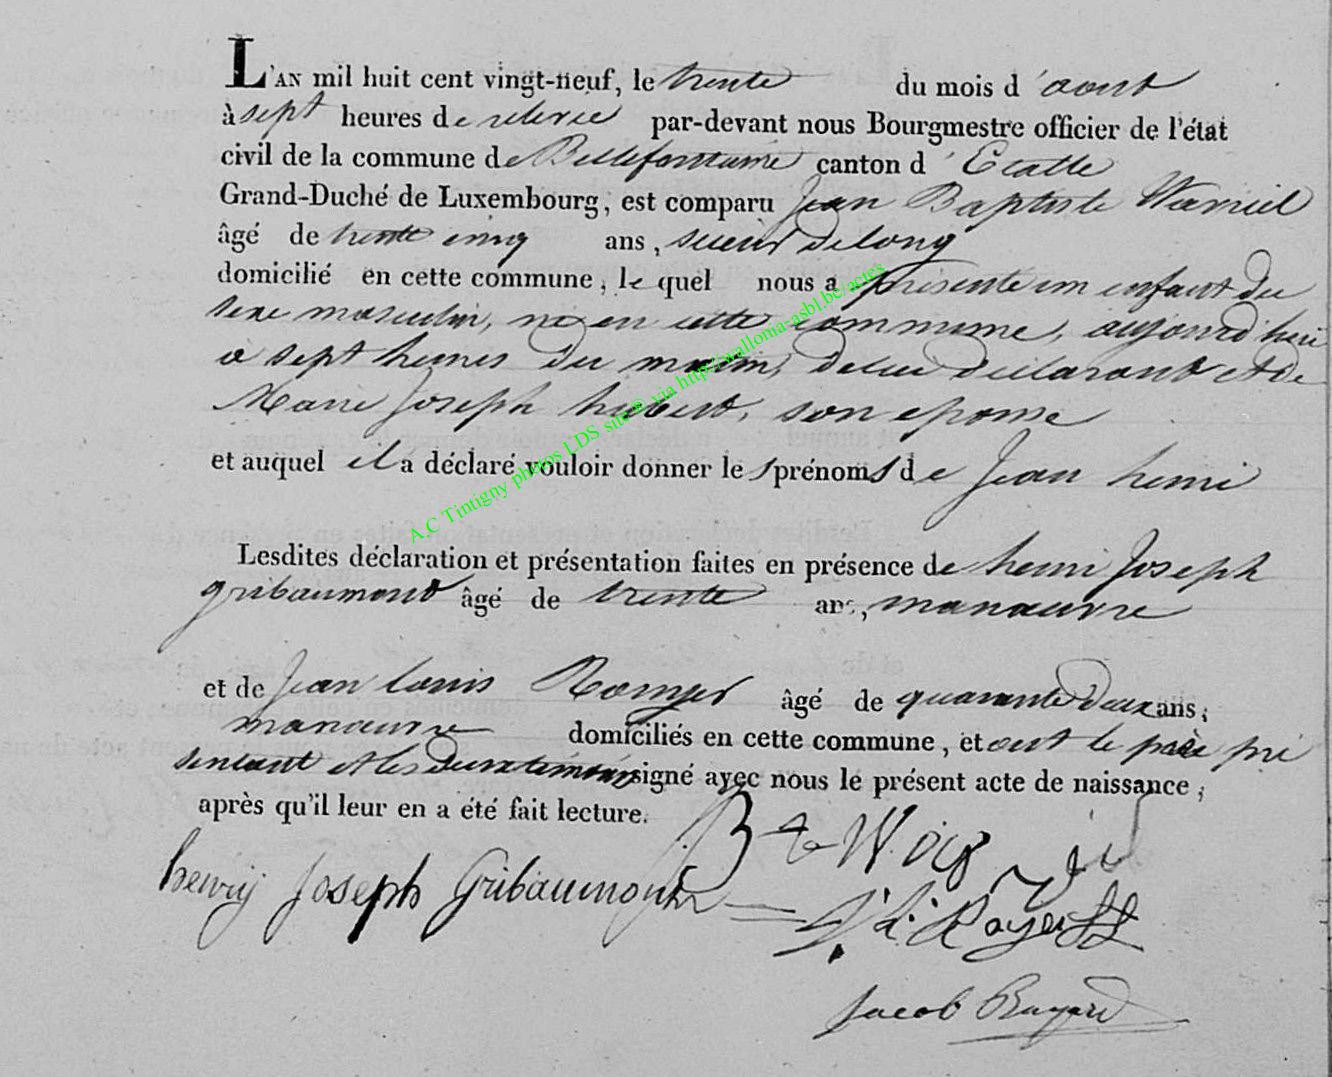 L'AN mil huit cent vingt-neuf, le trente du mois d'aout
à sept heures de relevée par-devant nous Bourgmestre officier de l'état
civil de la commune de Bellefontaine canton d'Etalle
Grand-Duché de Luxembourg, est comparu Jean Baptiste
âgé de trente cinq ans, scieur de long
domicilié en cette commune, le quel nous a présenté un enfant du
sexe masculin, né en cette commune, aujourd'hui
à sept heures du matin, de lui déclarant et de
Marie Joseph hubert, son epouse
et auquel il a déclaré vouloir donner les prénoms de Jean henri
Lesdites déclaration et présentation faites en présence de henri Joseph
gribaumont âgé de trente ans, manœuvre
et de Jean louis âgé de quarante deux ans,
manœuvre domiciliés en cette commune, et ont le père pré
sentant et les deux témoins signé avec nous le présent acte de naissance,
après qu'il leur en a été fait lecture.
henry Joseph Gribaumont
Jacob
A.C Tintigny photos LDS site© via http://wallonia-asbl.be/actes